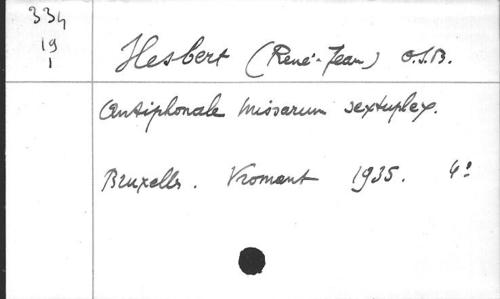 334
19
1
Hesbert (René-Jean) O.S.B.
Antiphonale Missarum sextuplex.
Bruxelles. Vromant 1935. 4°